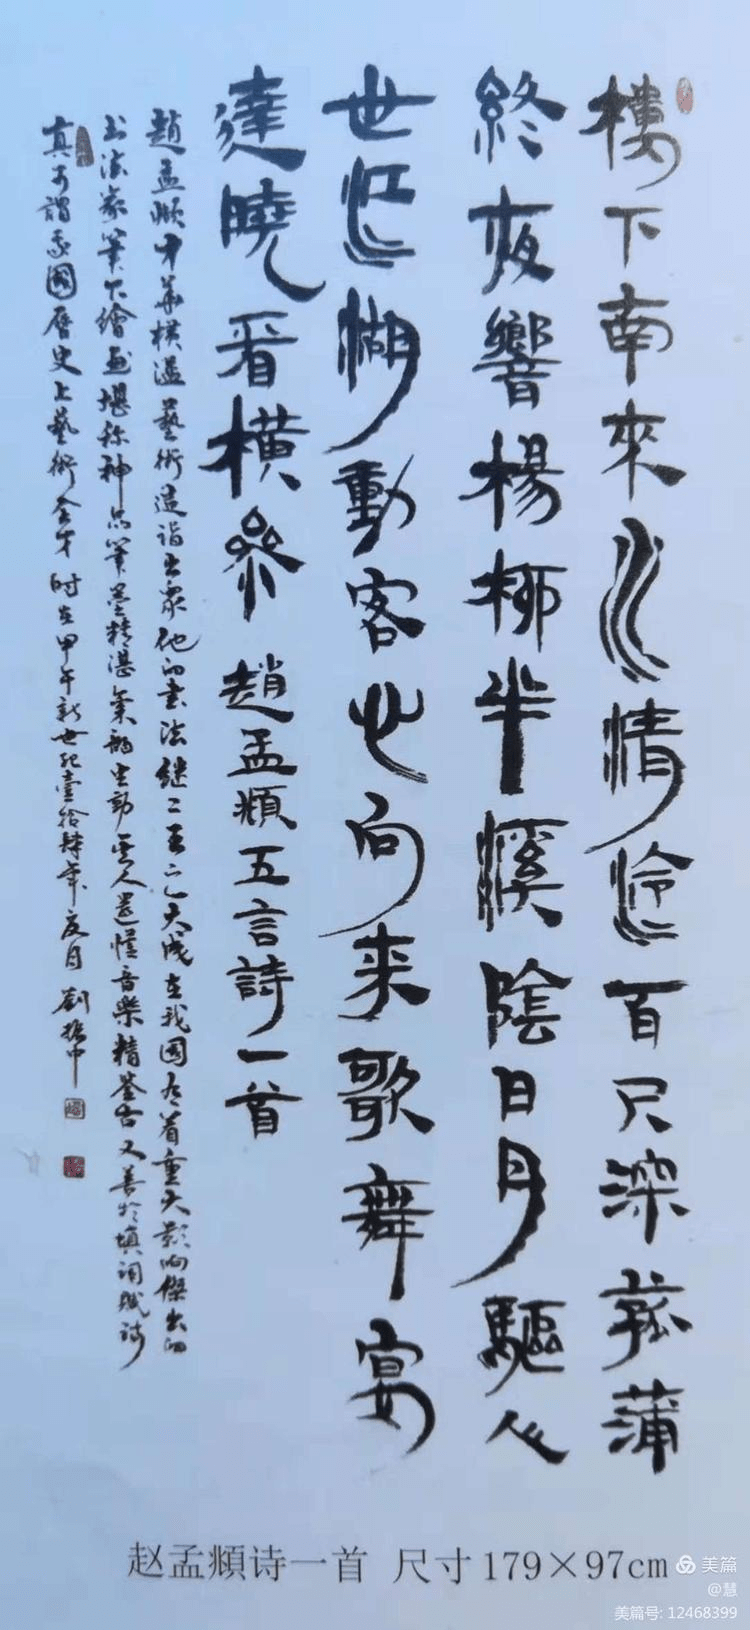 樓下南來水清泠百尺深菰蒲
終夜響楊柳半溪陰日月驅人
世江湖動客心向来歌舞宴
達曉看橫參 趙孟頫五言詩一首
趙孟頫才華橫溢藝術造詣出衆他的書法继二王之大成在我國有着重大影响傑出的
書法家筆下繪画堪称神品筆墨精湛氣韵生動人還懂音樂精鉴古又善於填词賦詩
真可謂我國歷史上藝術全才時在甲午新世纪壹拾肆年夏月 劉振中
赵孟頫诗一首 尺寸179×97cm
美篇
@慧
美篇号: 12468399